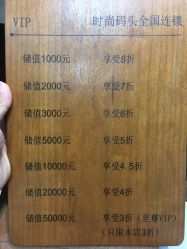 VIP 时尚码头全国连锁
储值1000元 享受8折
储值2000元 享受7折
储值3000元 享受6折
储值5000元 享受5折
储值10000元 享受4.5折
储值20000元 享受4折
储值50000元 享受3折(至尊VIP)
(只限本店3折)